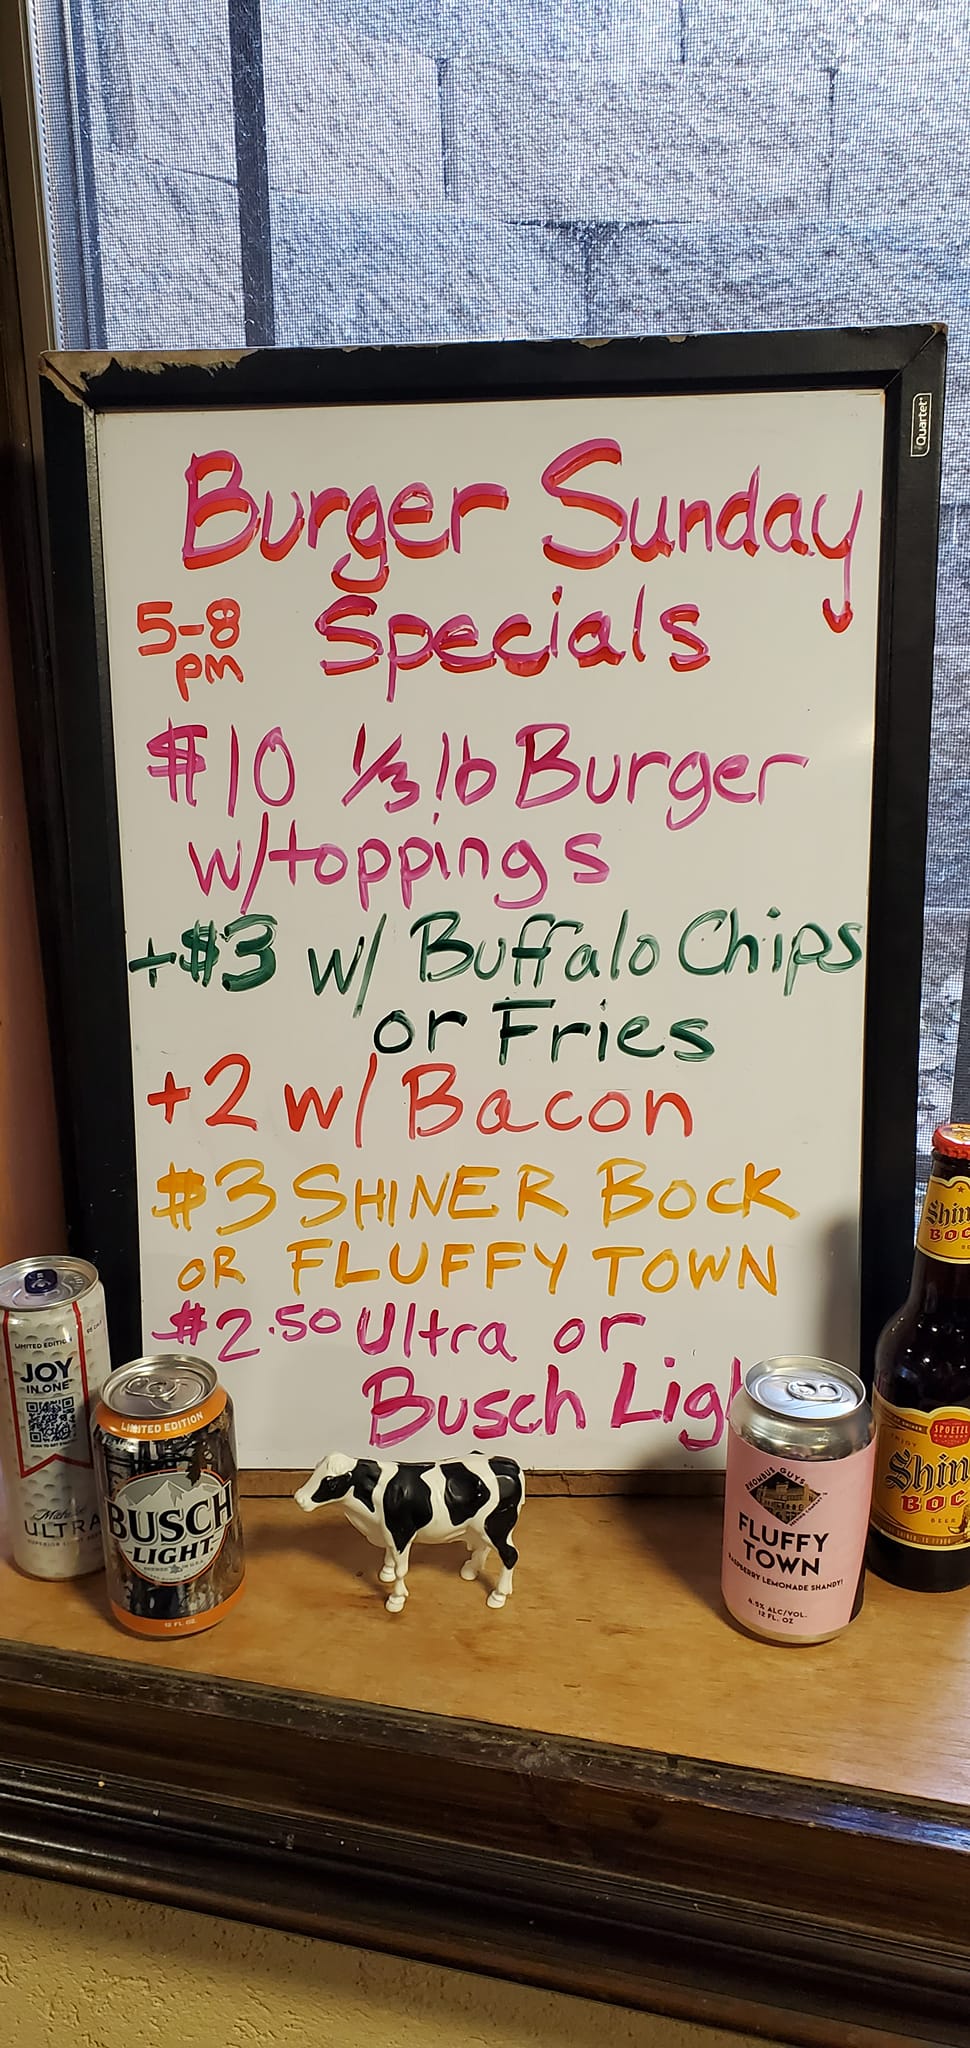 Quartet
Burger Sunday
5-8
pm
Specials
$10 1/3 lb Burger
w/toppings
+$3 w/ Buffalo Chips
or Fries
+2 w/ Bacon
$3 SHINER BOCK
OR FLUFFY TOWN
$2.50 Ultra or
Busch Lig
LIMITED EDITION
JOY
IN ONE
ULTRA
LIMITED EDITION
BUSCH
LIGHT
12 FL. OZ.
FLUFFY
TOWN
RASPBERRY LEMONADE SHANDY!
4.5% ALC/VOL.
12 FL. OZ
Shin
BOC
SPOETZL
ENJOY
Shin
BOC
BEER